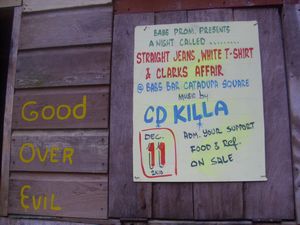 BABE PROM. PRESENTS
A NIGHT CALLED .........
STRAIGHT JEANS, WHITE T-SHIRT
& CLARKS AFFAIR
@ BABS BAR CATADUPA SQUARE
MUSIC by
CD KILLA
DEC.
11
2K10
ADM. YOUR SUPPORT
FOOD & Ref.
ON SALE
Good
OVER
EVIL